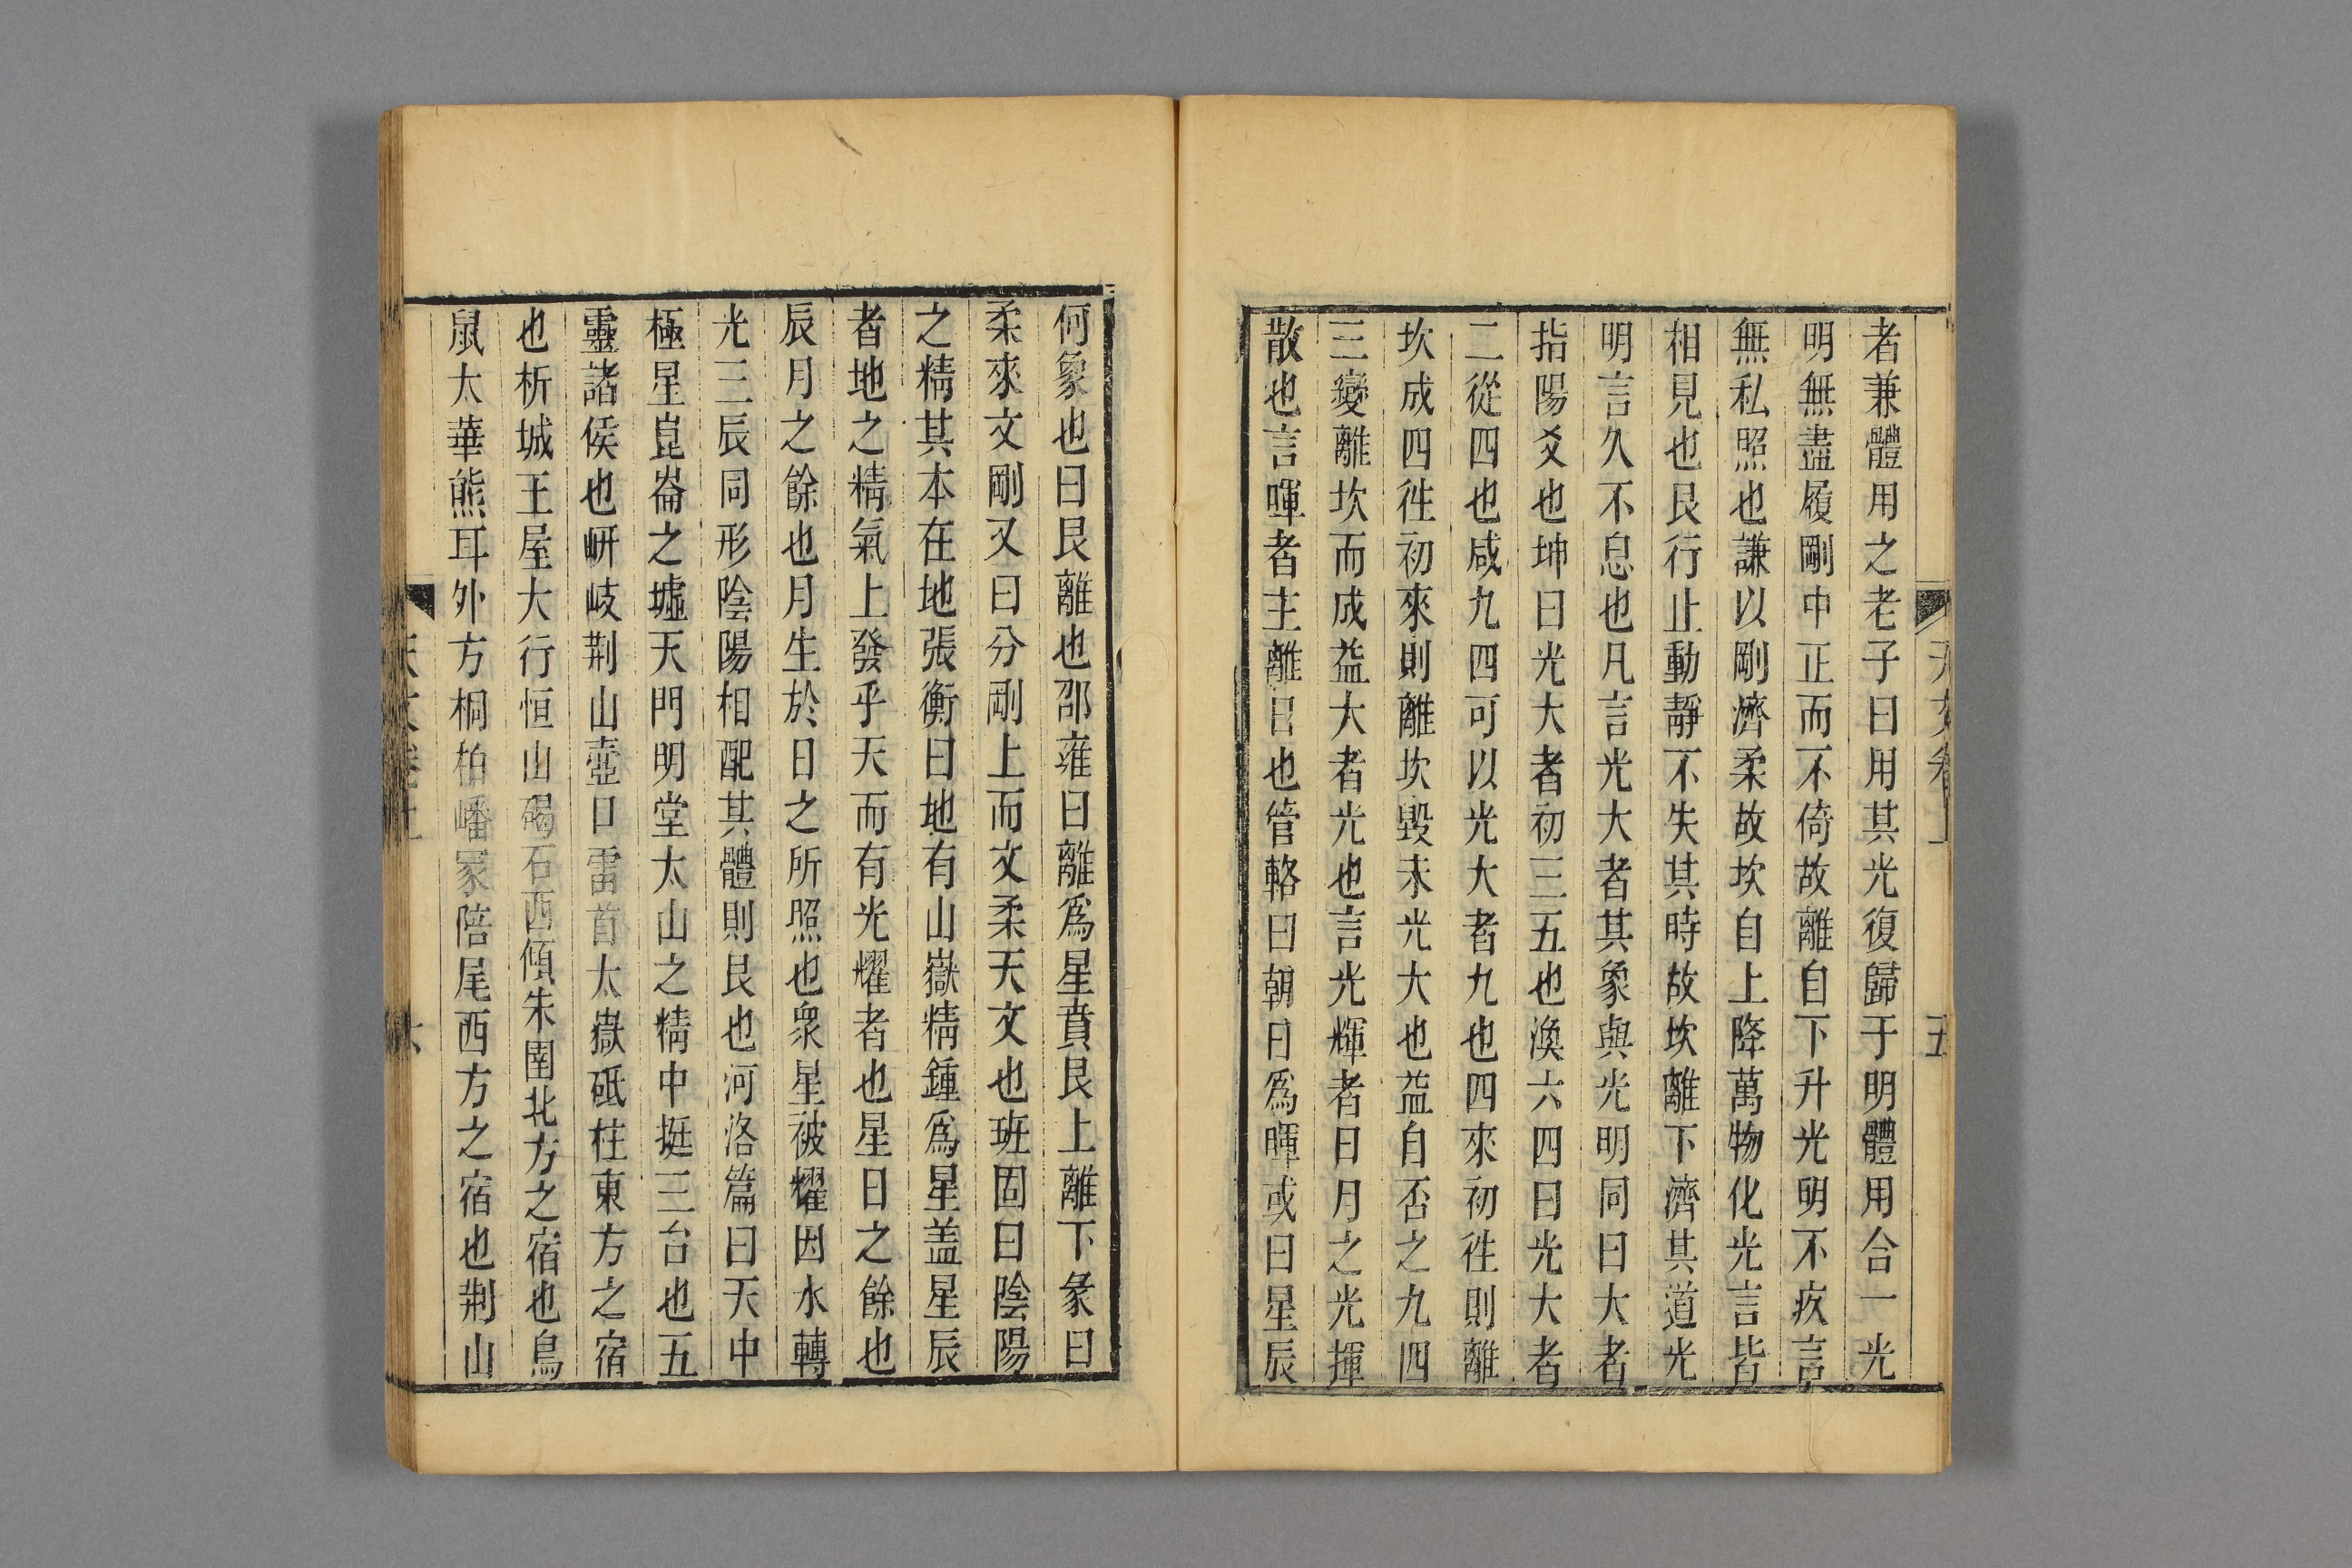 者兼體用之老子曰用其光復歸于明體用合一光
明無盡履剛中正而不倚故離自下升光明不疚言
無私照也謙以剛濟柔故坎自上降萬物化光言皆
相見也艮行止動靜不失其時故坎離下濟其道光
明言久不息也凡言光大者其象與光明同曰大者
指陽爻也坤曰光大者初三五也渙六四曰光大者
二從四也咸九四可以光大者九也四來初徃則離
坎成四徃初來則離坎毀未光大也益自否之九四
三變離坎而成益大者光也言光輝者日月之光揮
散也言暉者主離日也管輅曰朝日爲暉或曰星辰
五
何象也曰艮離也邵雍曰離爲星賁艮上離下彖曰
柔來文剛又曰分剛上而文柔天文也班固曰陰陽
之精其本在地張衡曰地有山嶽精鍾爲星盖星辰
者地之精氣上發乎天而有光耀者也星日之餘也
辰月之餘也月生於日之所照也衆星被耀因水轉
光三辰同形陰陽相配其體則艮也河洛篇曰天中
極星崑崙之墟天門明堂太山之精中挺三台也五
靈諸侯也岍岐荆山壺口雷首太嶽砥柱東方之宿
也析城王屋大行恒山碣石西傾朱圉北方之宿也鳥
鼠太華熊耳外方桐柏嶓冢陪尾西方之宿也荆山